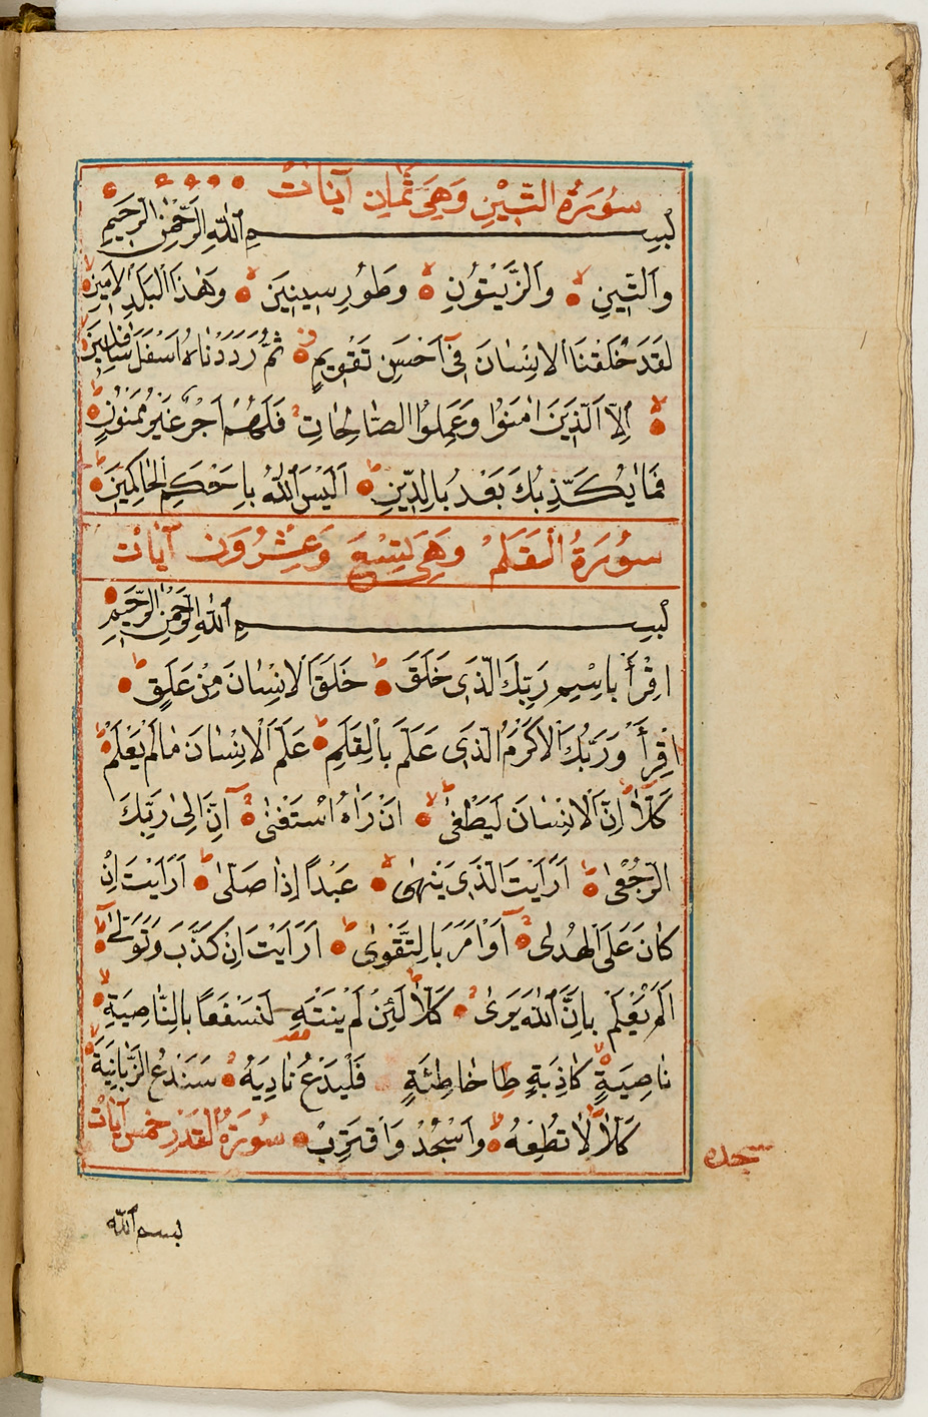 سُورَةُ التِّيْنِ وَهِيَ ثَمَانِ آيَاتْ
بِسْمِ اللّٰهِ الرَّحْمٰنِ الرَّحِيمِ
وَالتِّينِ وَالزَّيْتُونِ وَطُورِ سِينِينَ وَهٰذَا الْبَلَدِ الْاَمِينِ
لَقَدْ خَلَقْنَا الْاِنْسَانَ فِي اَحْسَنِ تَقْوِيمٍ ثُمَّ رَدَدْنَاهُ اَسْفَلَ سَافِلِينَ
اِلَّا الَّذِينَ اٰمَنُوا وَعَمِلُوا الصَّالِحَاتِ فَلَهُمْ اَجْرٌ غَيْرُ مَمْنُونٍ
فَمَا يُكَذِّبُكَ بَعْدُ بِالدِّينِ اَلَيْسَ اللّٰهُ بِاَحْكَمِ الْحَاكِمِينَ
سُورَةُ الْقَلَمْ وَهِيَ تِسْعَ وَعِشْرُونَ آيَاتْ
بِسْمِ اللّٰهِ الرَّحْمٰنِ الرَّحِيمِ
اِقْرَأْ بِاسْمِ رَبِّكَ الَّذِي خَلَقَ خَلَقَ الْاِنْسَانَ مِنْ عَلَقٍ
اِقْرَأْ وَرَبُّكَ الْاَكْرَمُ الَّذِي عَلَّمَ بِالْقَلَمِ عَلَّمَ الْاِنْسَانَ مَا لَمْ يَعْلَمْ
كَلَّا اِنَّ الْاِنْسَانَ لَيَطْغٰى اَنْ رَاٰهُ اسْتَغْنٰى اِنَّ اِلٰى رَبِّكَ
الرُّجْعٰى اَرَاَيْتَ الَّذِي يَنْهٰى عَبْدًا اِذَا صَلّٰى اَرَاَيْتَ اِنْ
كَانَ عَلَى الْهُدٰى اَوْ اَمَرَ بِالتَّقْوٰى اَرَاَيْتَ اِنْ كَذَّبَ وَتَوَلّٰى
اَلَمْ يَعْلَمْ بِاَنَّ اللّٰهَ يَرٰى كَلَّا لَئِنْ لَمْ يَنْتَهِ لَنَسْفَعًا بِالنَّاصِيَةِ
نَاصِيَةٍ كَاذِبَةٍ خَاطِئَةٍ فَلْيَدْعُ نَادِيَهُ سَنَدْعُ الزَّبَانِيَةَ
كَلَّا لَا تُطِعْهُ وَاسْجُدْ وَاقْتَرِبْ سُورَةُ الْقَدْرِ خَمْسُ آيَاتْ
سجده
بسم الله